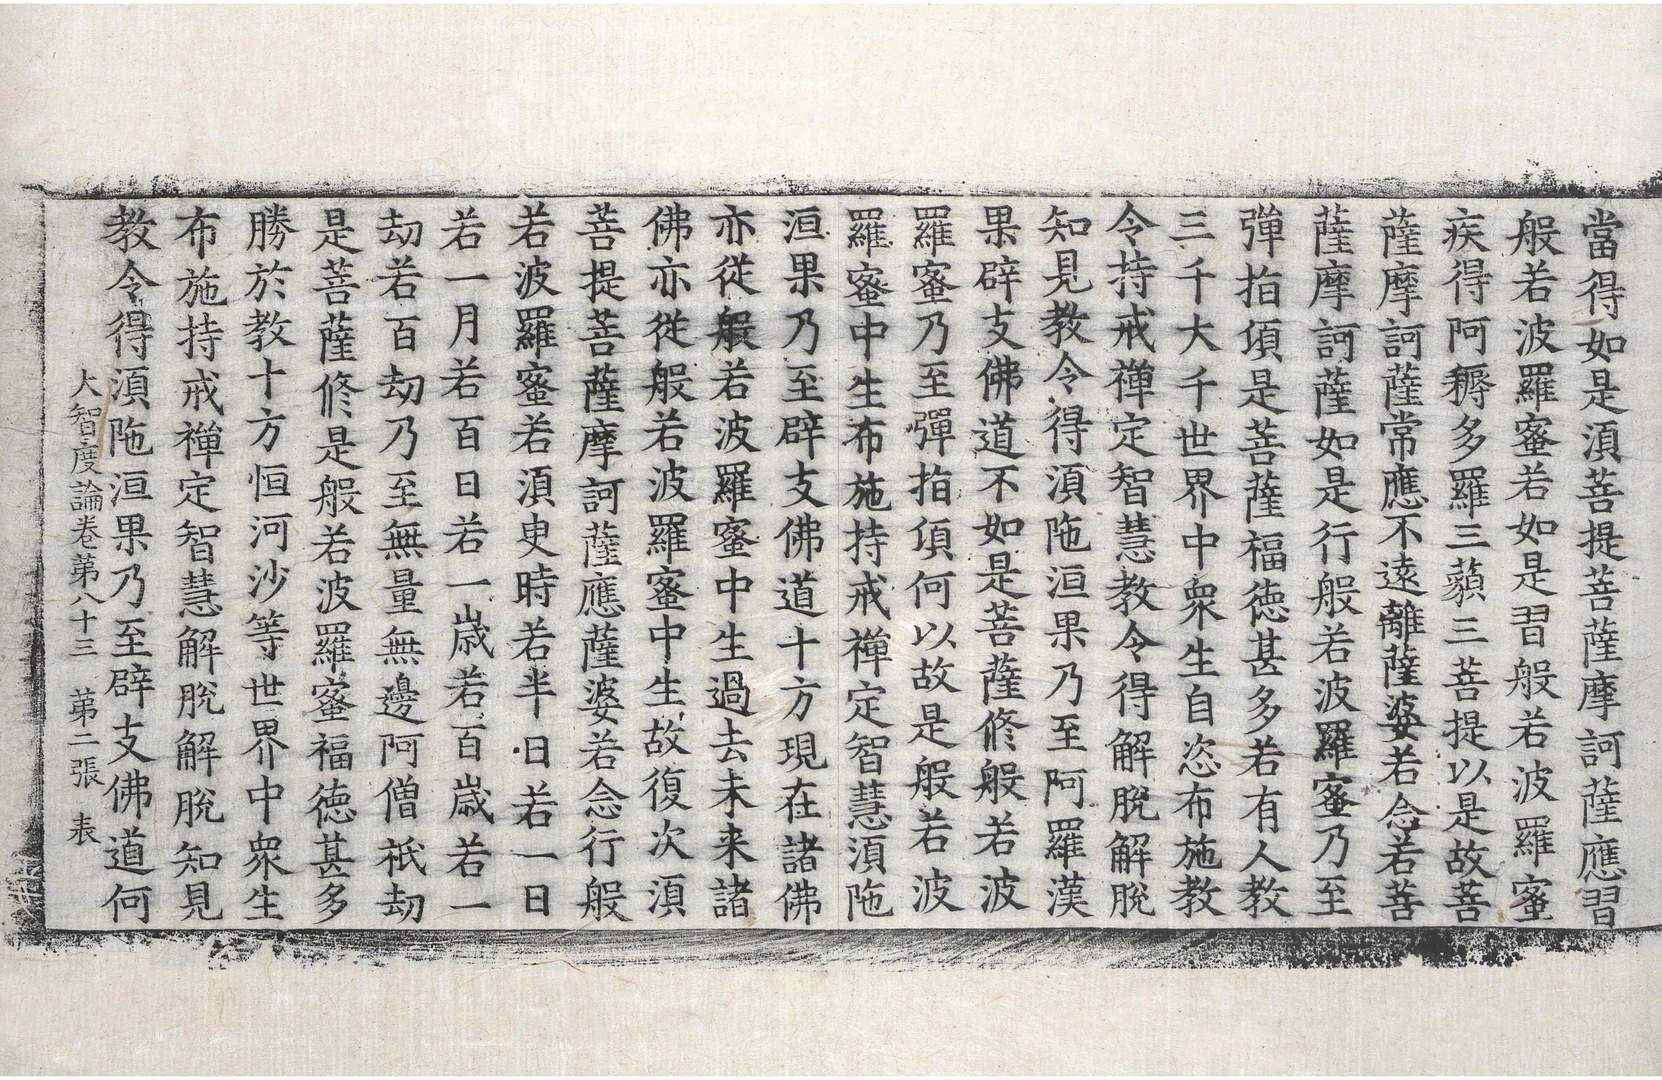 當得如是須菩提菩薩摩訶薩應習
般若波羅蜜若如是習般若波羅蜜
疾得阿耨多羅三藐三菩提以是故菩
薩摩訶薩常應不遠離薩婆若念若菩
薩摩訶薩如是行般若波羅蜜乃至
彈指頃是菩薩福德甚多若有人教
三千大千世界中衆生自恣布施教
令持戒禪定智慧教令得解脫解脫
知見教令得須陁洹果乃至阿羅漢
果辟支佛道不如是菩薩修般若波
羅蜜乃至彈指頃何以故是般若波
羅蜜中生布施持戒禪定智慧須陁
洹果乃至辟支佛道十方現在諸佛
亦從般若波羅蜜中生過去未来諸
佛亦從般若波羅蜜中生故復次須
菩提菩薩摩訶薩應薩婆若念行般
若波羅蜜若須臾時若半日若一日
若一月若百日若一歲若百歲若一
劫若百劫乃至無量無邊阿僧祇劫
是菩薩修是般若波羅蜜福德甚多
勝於教十方恒河沙等世界中衆生
布施持戒禪定智慧解脫解脫知見
教令得須陁洹果乃至辟支佛道何
大智度論卷苐八十三　苐二張　表